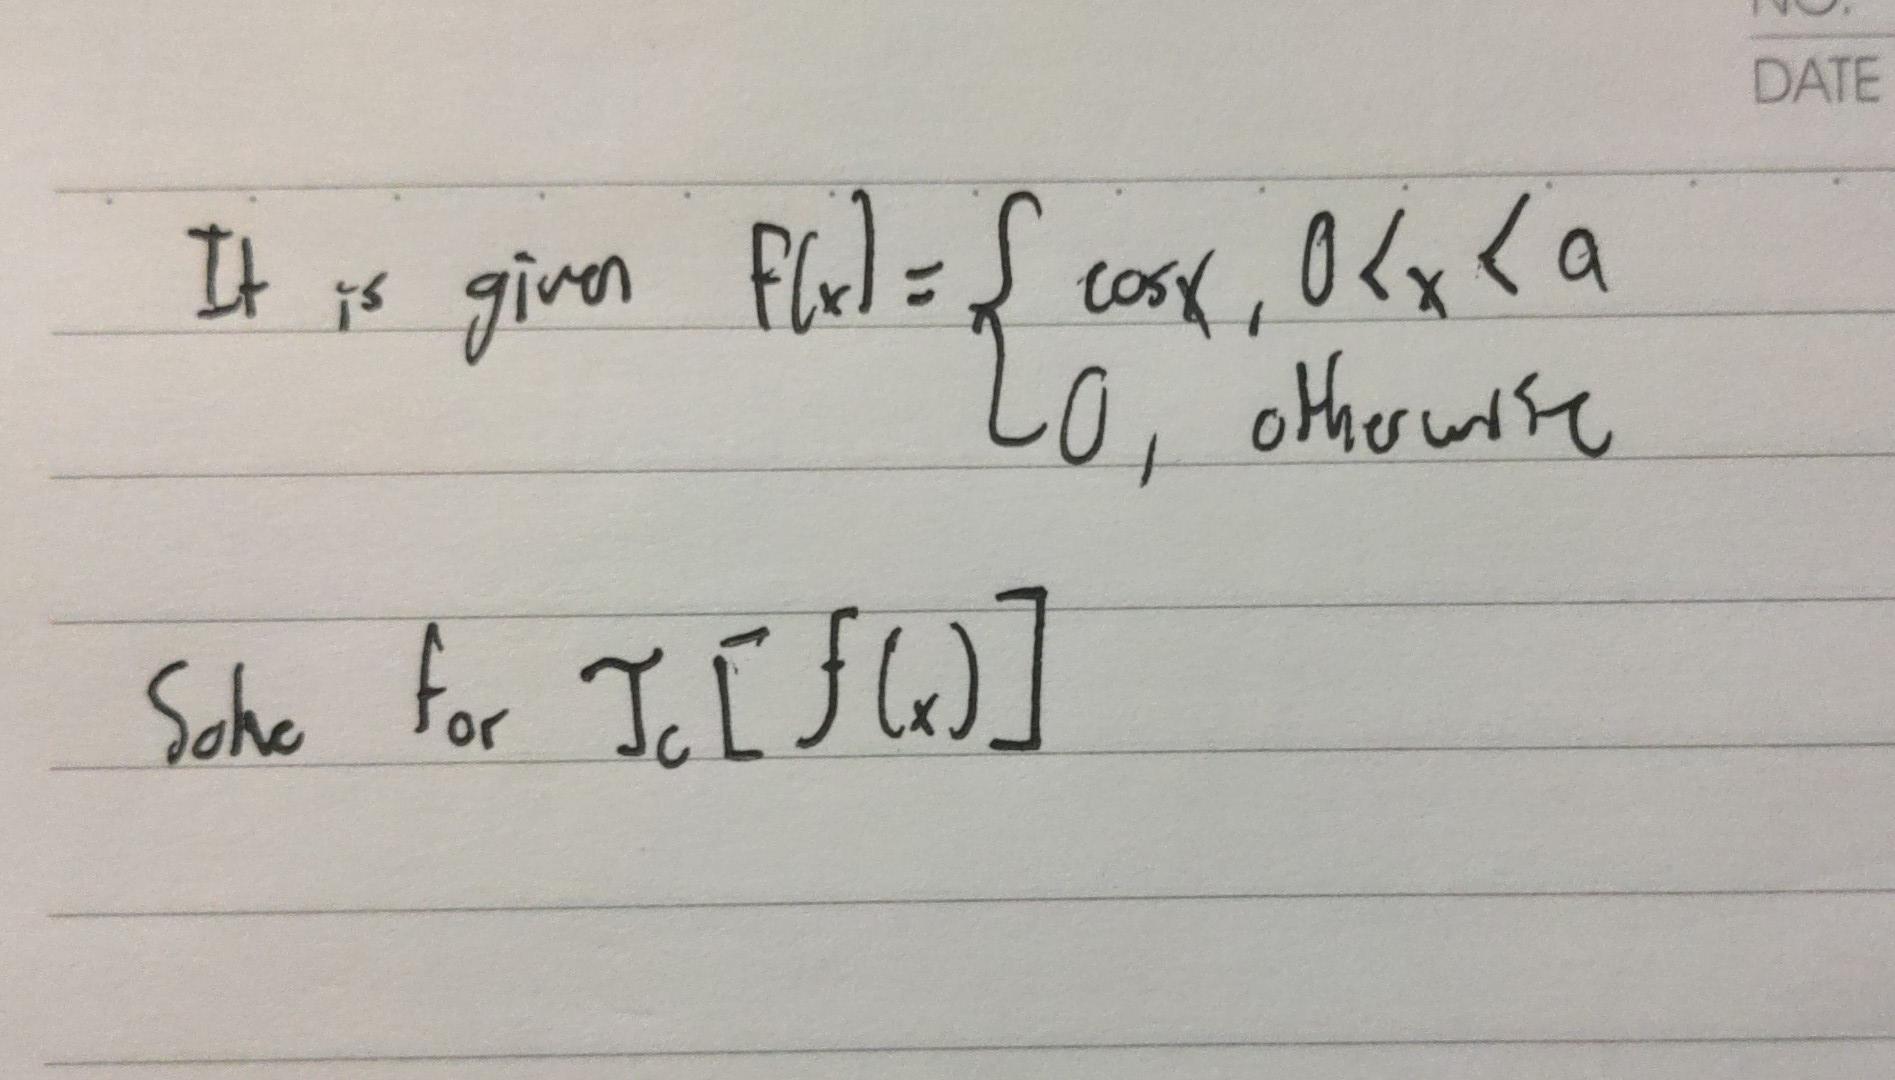 NO.
DATE
It is given F(x) = { cosx, 0 < x < a
0, otherwise
Solve for Fc [f(x)]